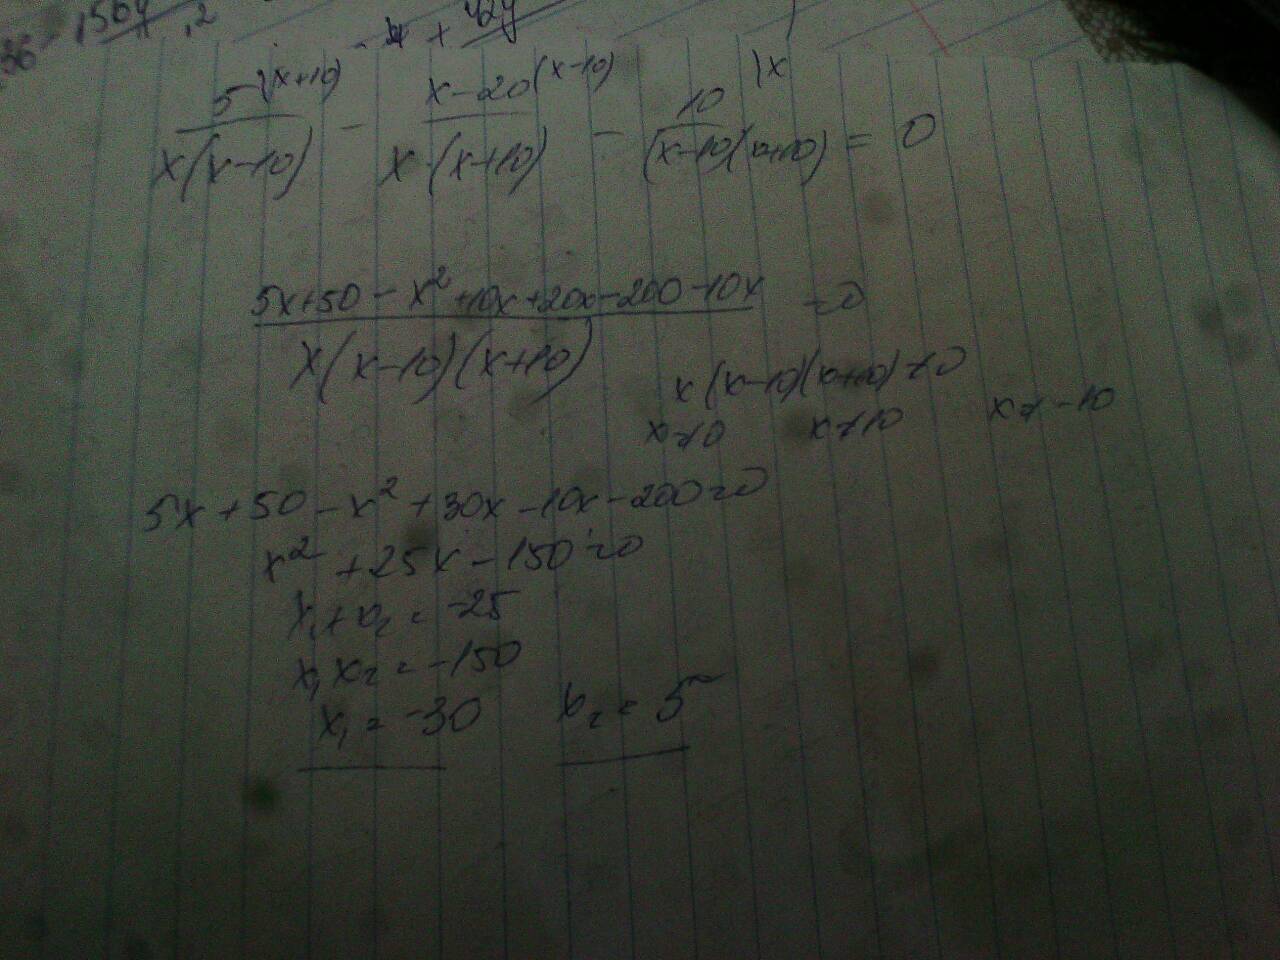 36 - 156y .2 - 4 + 42y
5^{(x+10)}/x(x-10) - x-20^{(x-10)}/x(x+10) - 10^{)x}/(x-10)(x+10) = 0
5x+50-x²+10x+20x-200-10x/x(x-10)(x+10) =0
x(x-10)(x+10)≠0
x≠0 x≠10 x≠-10
5x+50-x²+30x-10x-200=0
x²+25x-150=0
x₁+x₂=-25
x₁x₂=-150
x₁=-30 x₂=5